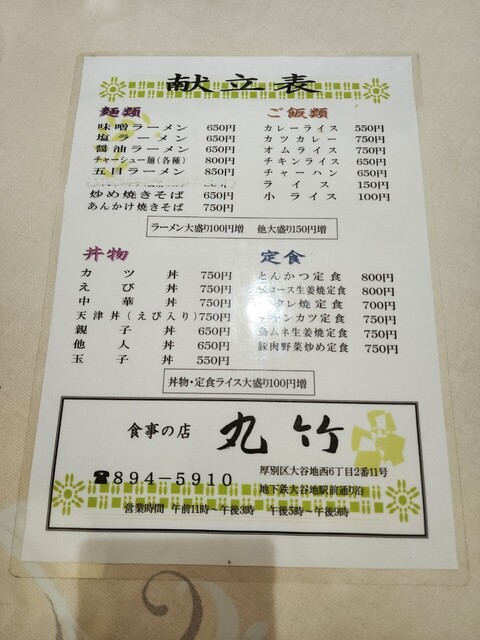 献立表
麺類
味噌ラーメン 650円
塩ラーメン 650円
醤油ラーメン 650円
チャーシュー麺(各種) 800円
五目ラーメン 850円
炒め焼きそば 650円
あんかけ焼きそば 750円
ご飯類
カレーライス 550円
カツカレー 750円
オムライス 750円
チキンライス 650円
チャーハン 650円
ライス 150円
小ライス 100円
ラーメン大盛り100円増 他大盛り150円増
丼物
カツ丼 750円
えび丼 750円
中華丼 750円
天津丼(えび入り) 750円
親子丼 650円
他人丼 650円
玉子丼 550円
定食
とんかつ定食 800円
ロース生姜焼定食 800円
タレ焼定食 700円
チキンカツ定食 750円
鶏ムネ生姜焼定食 750円
豚肉野菜炒め定食 750円
丼物・定食ライス大盛り100円増
食事の店 丸竹
☎894-5910
厚別区大谷地西6丁目2番11号
地下鉄大谷地駅前通り沿
営業時間 午前11時~午後3時 午後5時~午後9時